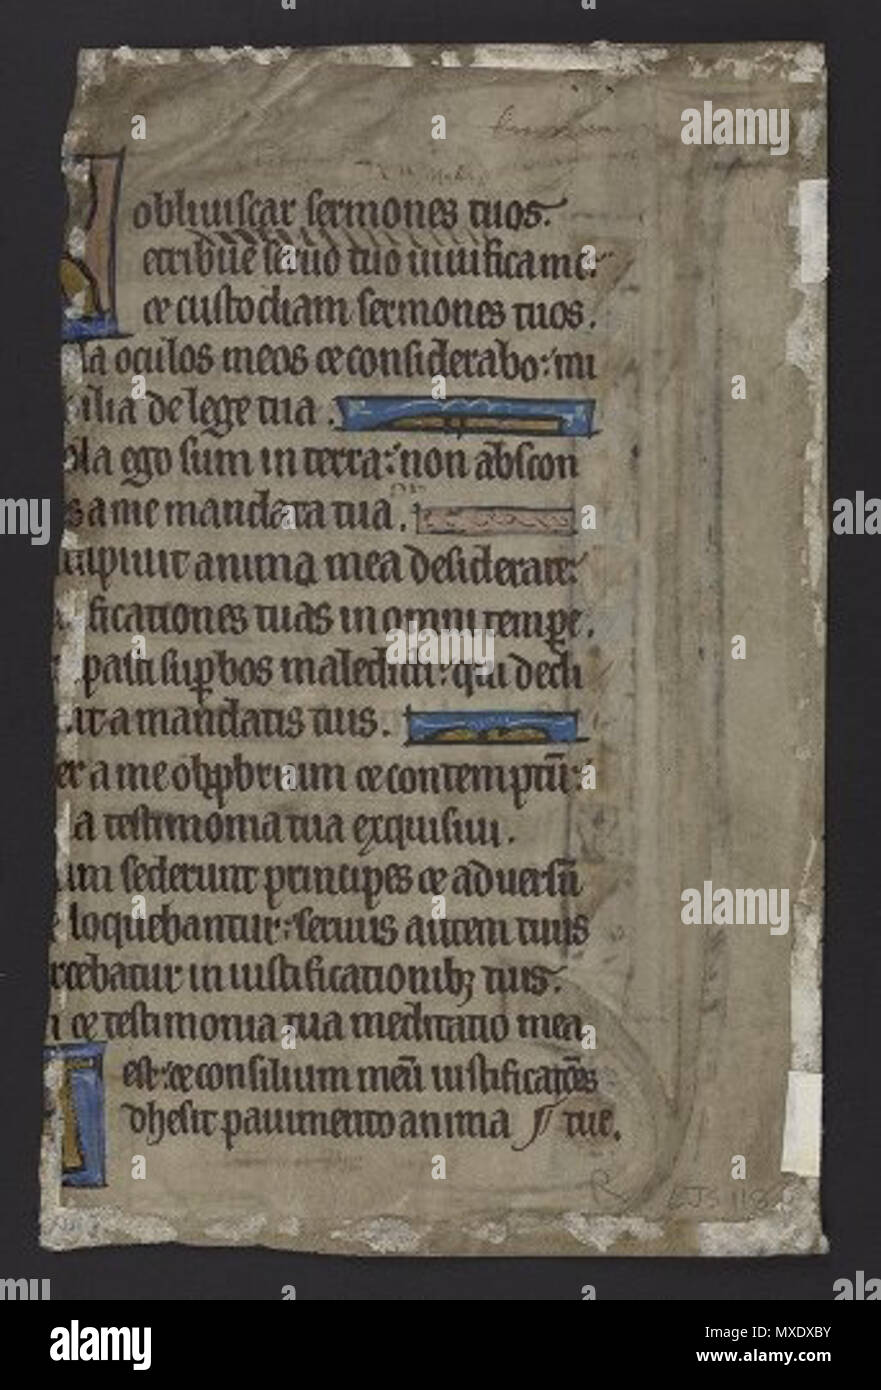 obliuiscar sermones tuos.
etribue seruo tuo uiuifica me:
et custodiam sermones tuos.
la oculos meos et considerabo: mi
ilia de lege tua.
ola ego sum in terra: non abscon
s a me mandata tua.
cupiuit anima mea desiderare:
ificationes tuas in omni tempore.
pasti suꝑbos maledicti: qui decli
nt a mandatis tuis.
er a me obꝓbrium et contemptū:
a testimonia tua exquisiui.
im sederunt principes et aduersū
e loquebantur: seruus autem tuus
rcebatur in iustificationibꝫ tuis.
m et testimonia tua meditatio mea
est: et consilium meū iustificatōes
dhesit pauimento anima tue.
R
LJS 118
a
alamy
Image ID: MXDXBY
www.alamy.com